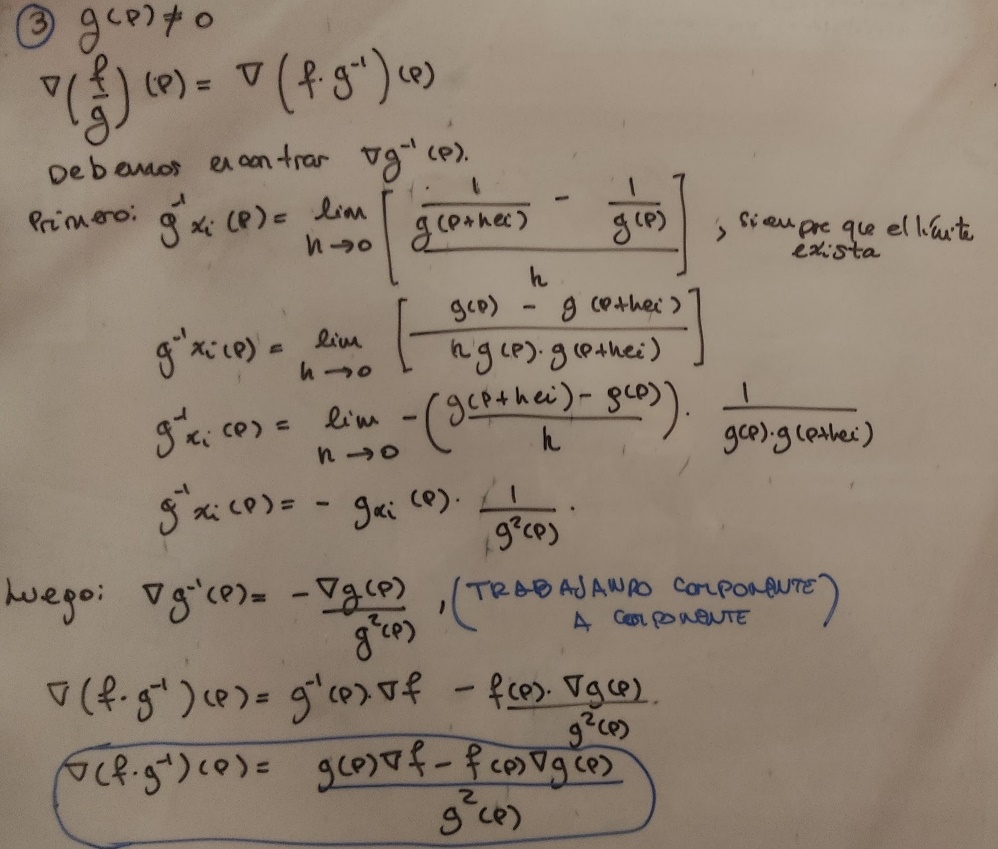 ③ g(P) ≠ 0
∇(f/g)(P) = ∇(f·g⁻¹)(P)
Debemos encontrar ∇g⁻¹(P).
Primero: g⁻¹xi(P) = lim h→0 [ (1/g(P+hei) - 1/g(P)) / h ] , siempre que el límite exista
g⁻¹xi(P) = lim h→0 [ (g(P) - g(P+hei)) / (h g(P)·g(P+hei)) ]
g⁻¹xi(P) = lim h→0 -( (g(P+hei) - g(P)) / h ) · 1/(g(P)·g(P+hei))
g⁻¹xi(P) = - gxi(P) · 1/g²(P).
Luego: ∇g⁻¹(P) = - ∇g(P)/g²(P) , (TRABAJANDO COMPONENTE A COMPONENTE)
∇(f·g⁻¹)(P) = g⁻¹(P)·∇f - f(P)·∇g(P)/g²(P).
∇(f·g⁻¹)(P) = (g(P)∇f - f(P)∇g(P)) / g²(P)